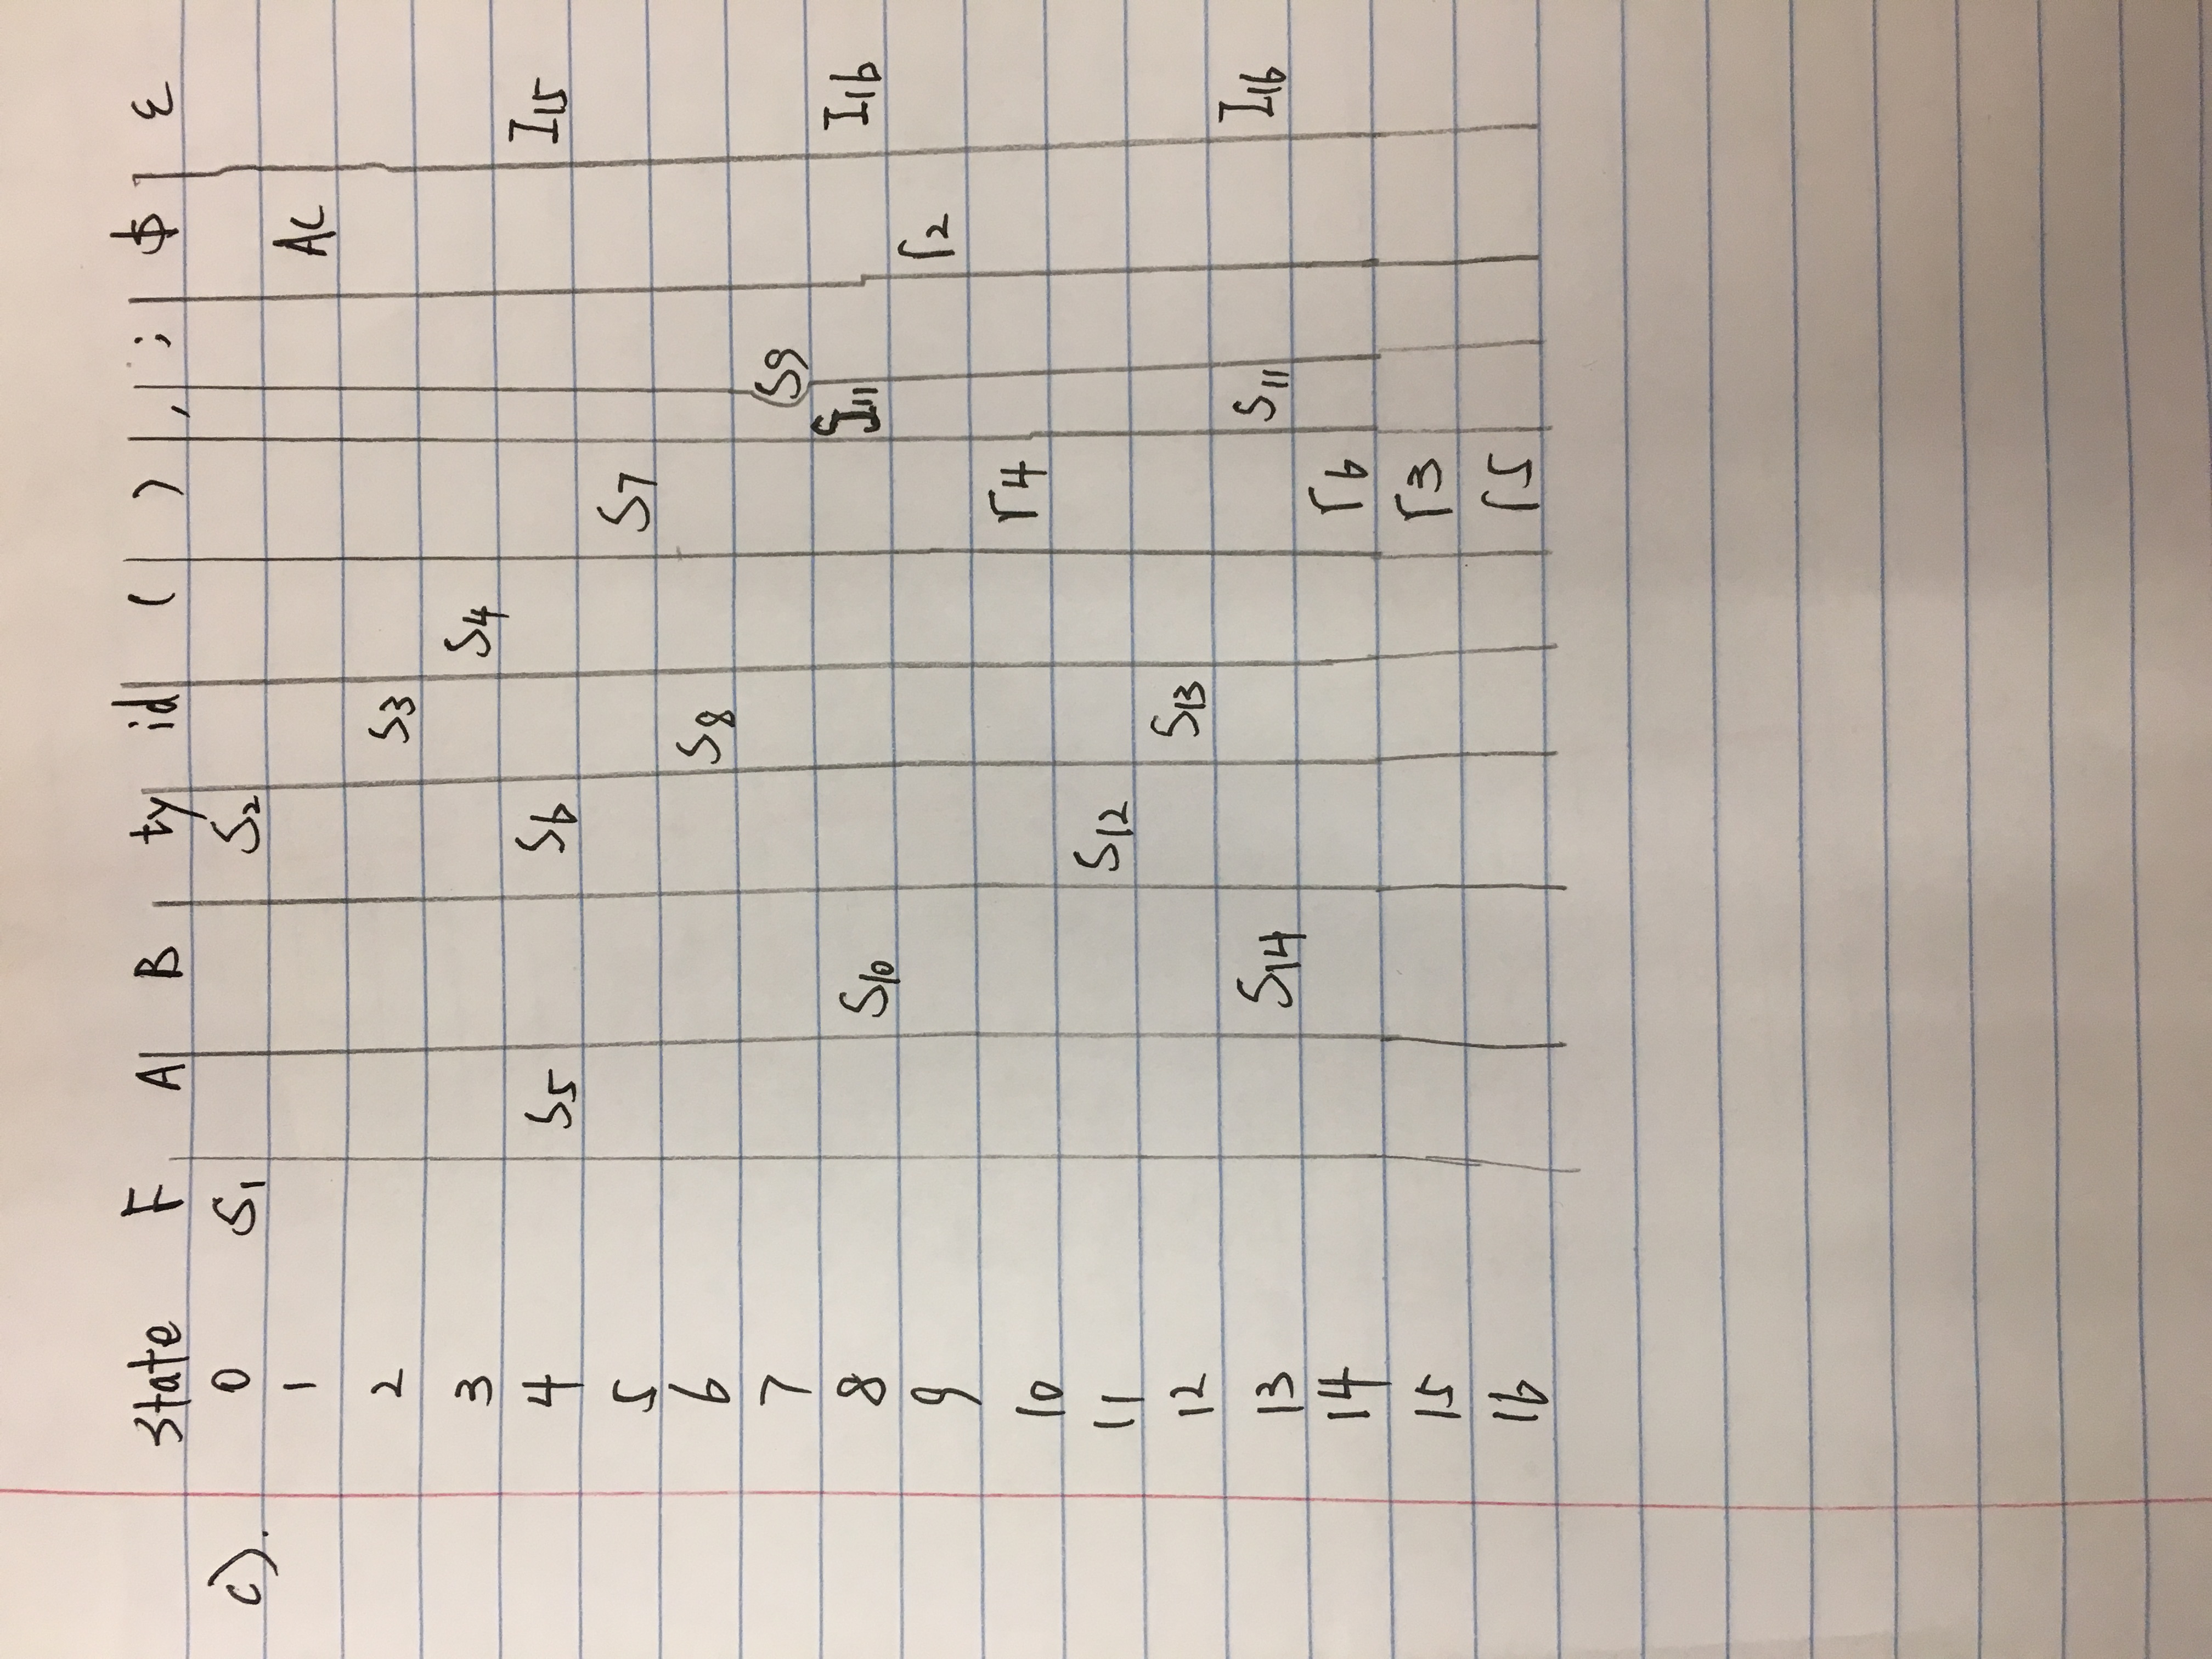 State F A B ty id ( ) , ; $ ε
c). 0 S1 S2
1 AC
2 S3
3 S4
4 S5 S6 I15
5 S7
6 S8
7 S9
8 S10 I11 I16
9 r2
10 r4
11 S12
12 S13
13 S14 S11 I16
14 r6
15 r3
16 r5